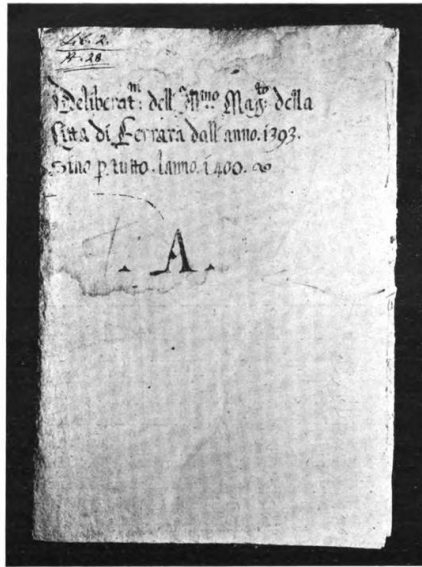 Lib. 2.
N. 28
Deliberat.ni dell' Ill.mo Mag.to della
Citta di Ferrara dall'anno. 1393.
Sino p. tutto. l'anno. 1400.
. A .